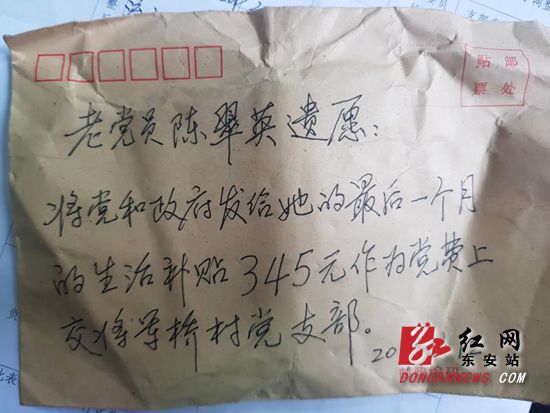 贴 邮
票 处
老党员陈翠英遗愿：
将党和政府发给她的最后一个月
的生活补贴345元作为党费上
交将军桥村党支部。
20
红网
东安站
DONGANNEWS.COM